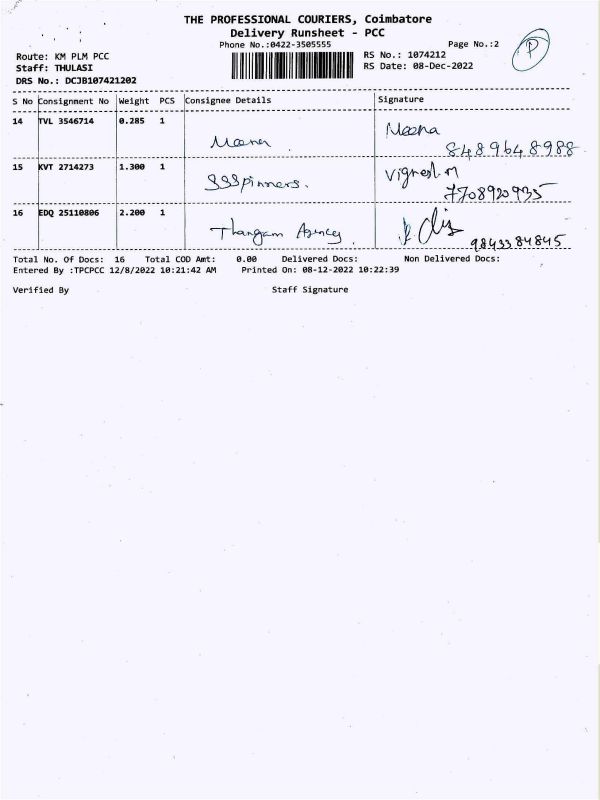 THE PROFESSIONAL COURIERS, Coimbatore
Delivery Runsheet - PCC
Phone No.:0422-3505555
Page No.:2
P
Route: KM PLM PCC
RS No.: 1074212
Staff: THULASI
RS Date: 08-Dec-2022
DRS No.: DCJB107421202
S No Consignment No Weight PCS Consignee Details Signature
14 TVL 3546714 0.285 1 Meena Meena
8489648988
15 KVT 2714273 1.300 1 SSSpinners. Vignesh.M
7708920935
16 EDQ 25110806 2.200 1 Thangam Agency
9843384845
Total No. Of Docs: 16 Total COD Amt: 0.00 Delivered Docs: Non Delivered Docs:
Entered By :TPCPCC 12/8/2022 10:21:42 AM Printed On: 08-12-2022 10:22:39
Verified By Staff Signature